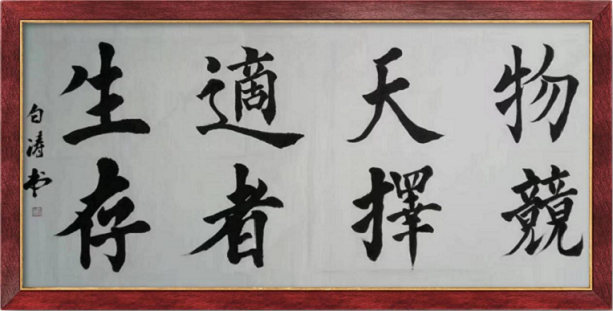 物競
天擇
適者
生存
白涛书